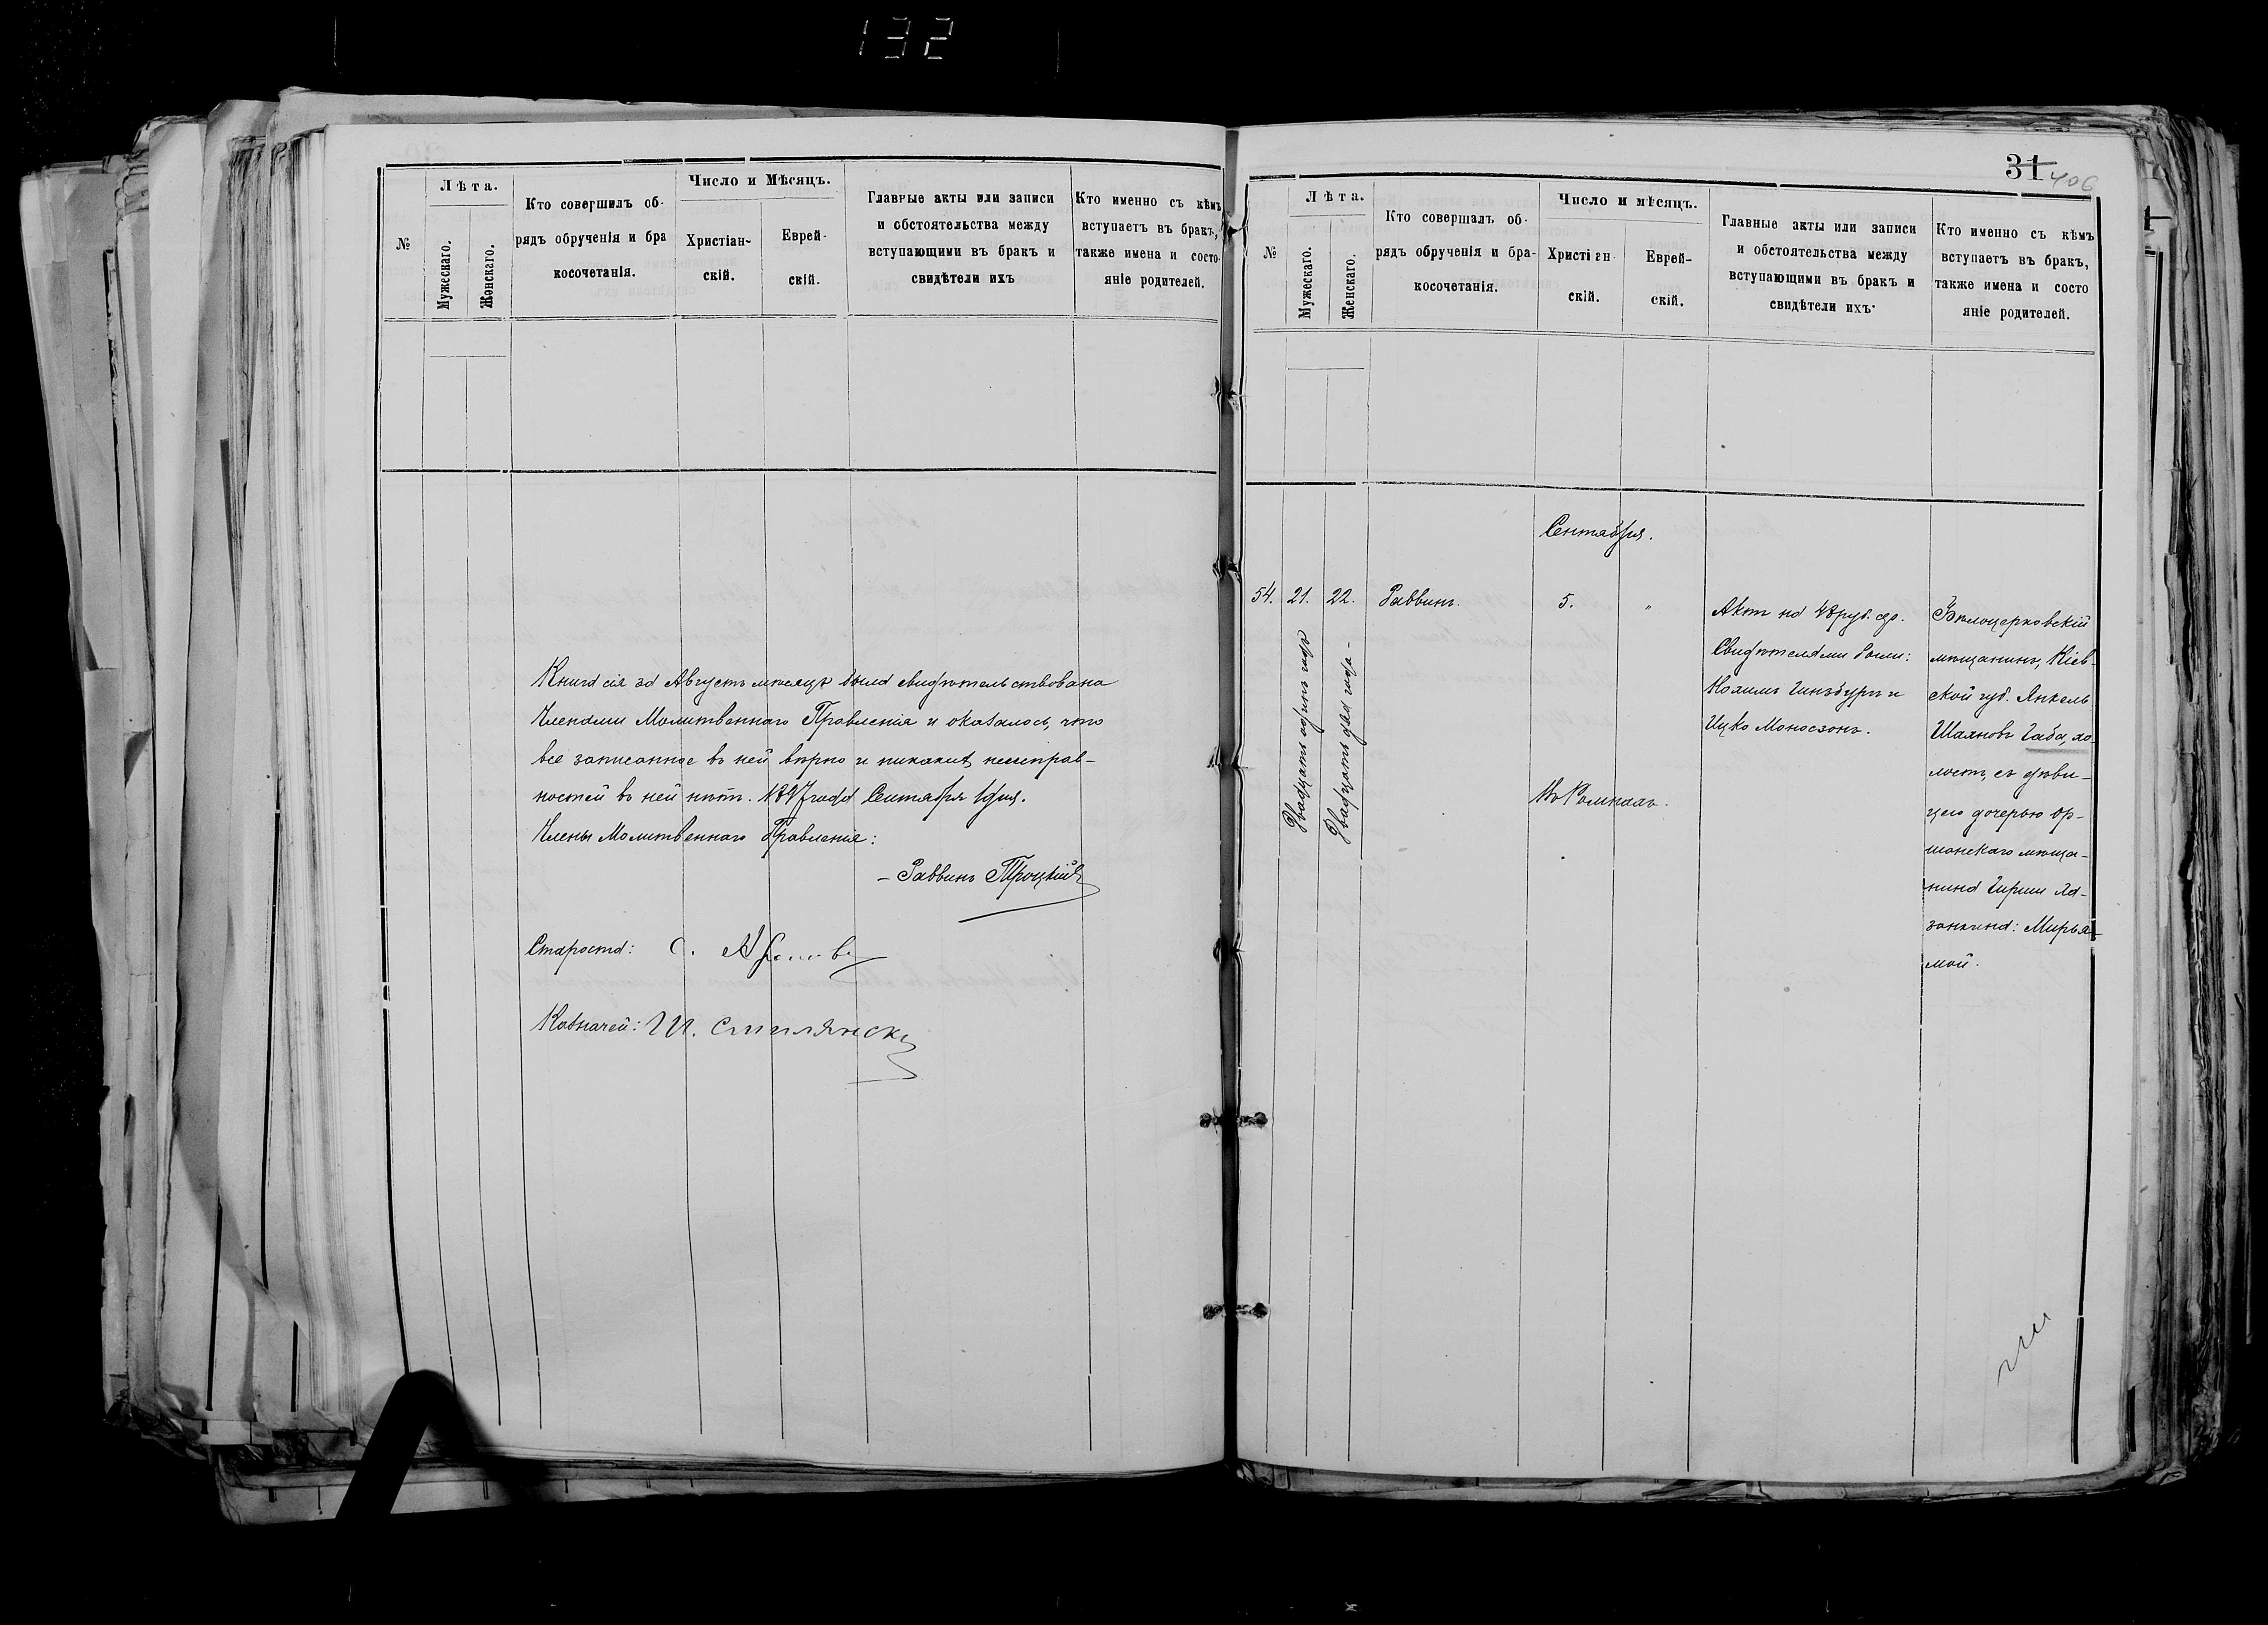 132
№
Лѣта.
Мужескаго.
Женскаго.
Кто совершилъ об-
рядъ обрученія и бра
косочетанія.
Число и Мѣсяцъ.
Христіан-
скій.
Еврей-
скій.
Главные акты или записи
и обстоятельства между
вступающими въ бракъ и
свидѣтели ихъ
Кто именно съ кѣмъ
вступаетъ въ бракъ,
также имена и состо-
яніе родителей.
Книга сія за Августъ мѣсяцъ была свидѣтельствована
Членами Молитвеннаго Правленія и оказалось, что
все записанное въ ней вѣрно и никакихъ неисправ-
ностей въ ней нѣтъ. 1897 года Сентября 1 дня.
Члены Молитвеннаго Правленія:
– Раввинъ Троцкій
Староста: С.
Казначей: И. Смилянск
31 406
№
Лѣта.
Мужескаго.
Женскаго.
Кто совершалъ об-
рядъ обрученія и бра-
косочетанія.
Число и мѣсяцъ.
Христіан
скій.
Еврей-
скій.
Главные акты или записи
и обстоятельства между
вступающими въ бракъ и
свидѣтели ихъ
Кто именно съ кѣмъ
вступаетъ въ бракъ,
также имена и состо
яніе родителей.
Сентября.
54.
21.
Двадцать одинъ годъ
22.
Двадцать два года –
Раввинъ.
5.
"
Въ Ромнахъ.
Актъ на 48 руб. сер.
Свидѣтелями были:
Нохимъ Гинзбургъ и
Ицко Моносзонъ.
Бѣлоцерковскій
мѣщанинъ, Кіев-
ской губ. Янкель
Шаяновъ Габа, хо-
лостъ, съ дѣви-
цею дочерью Ор-
шанскаго мѣща-
нина Гирши Ха-
занкина: Мирья-
мой.